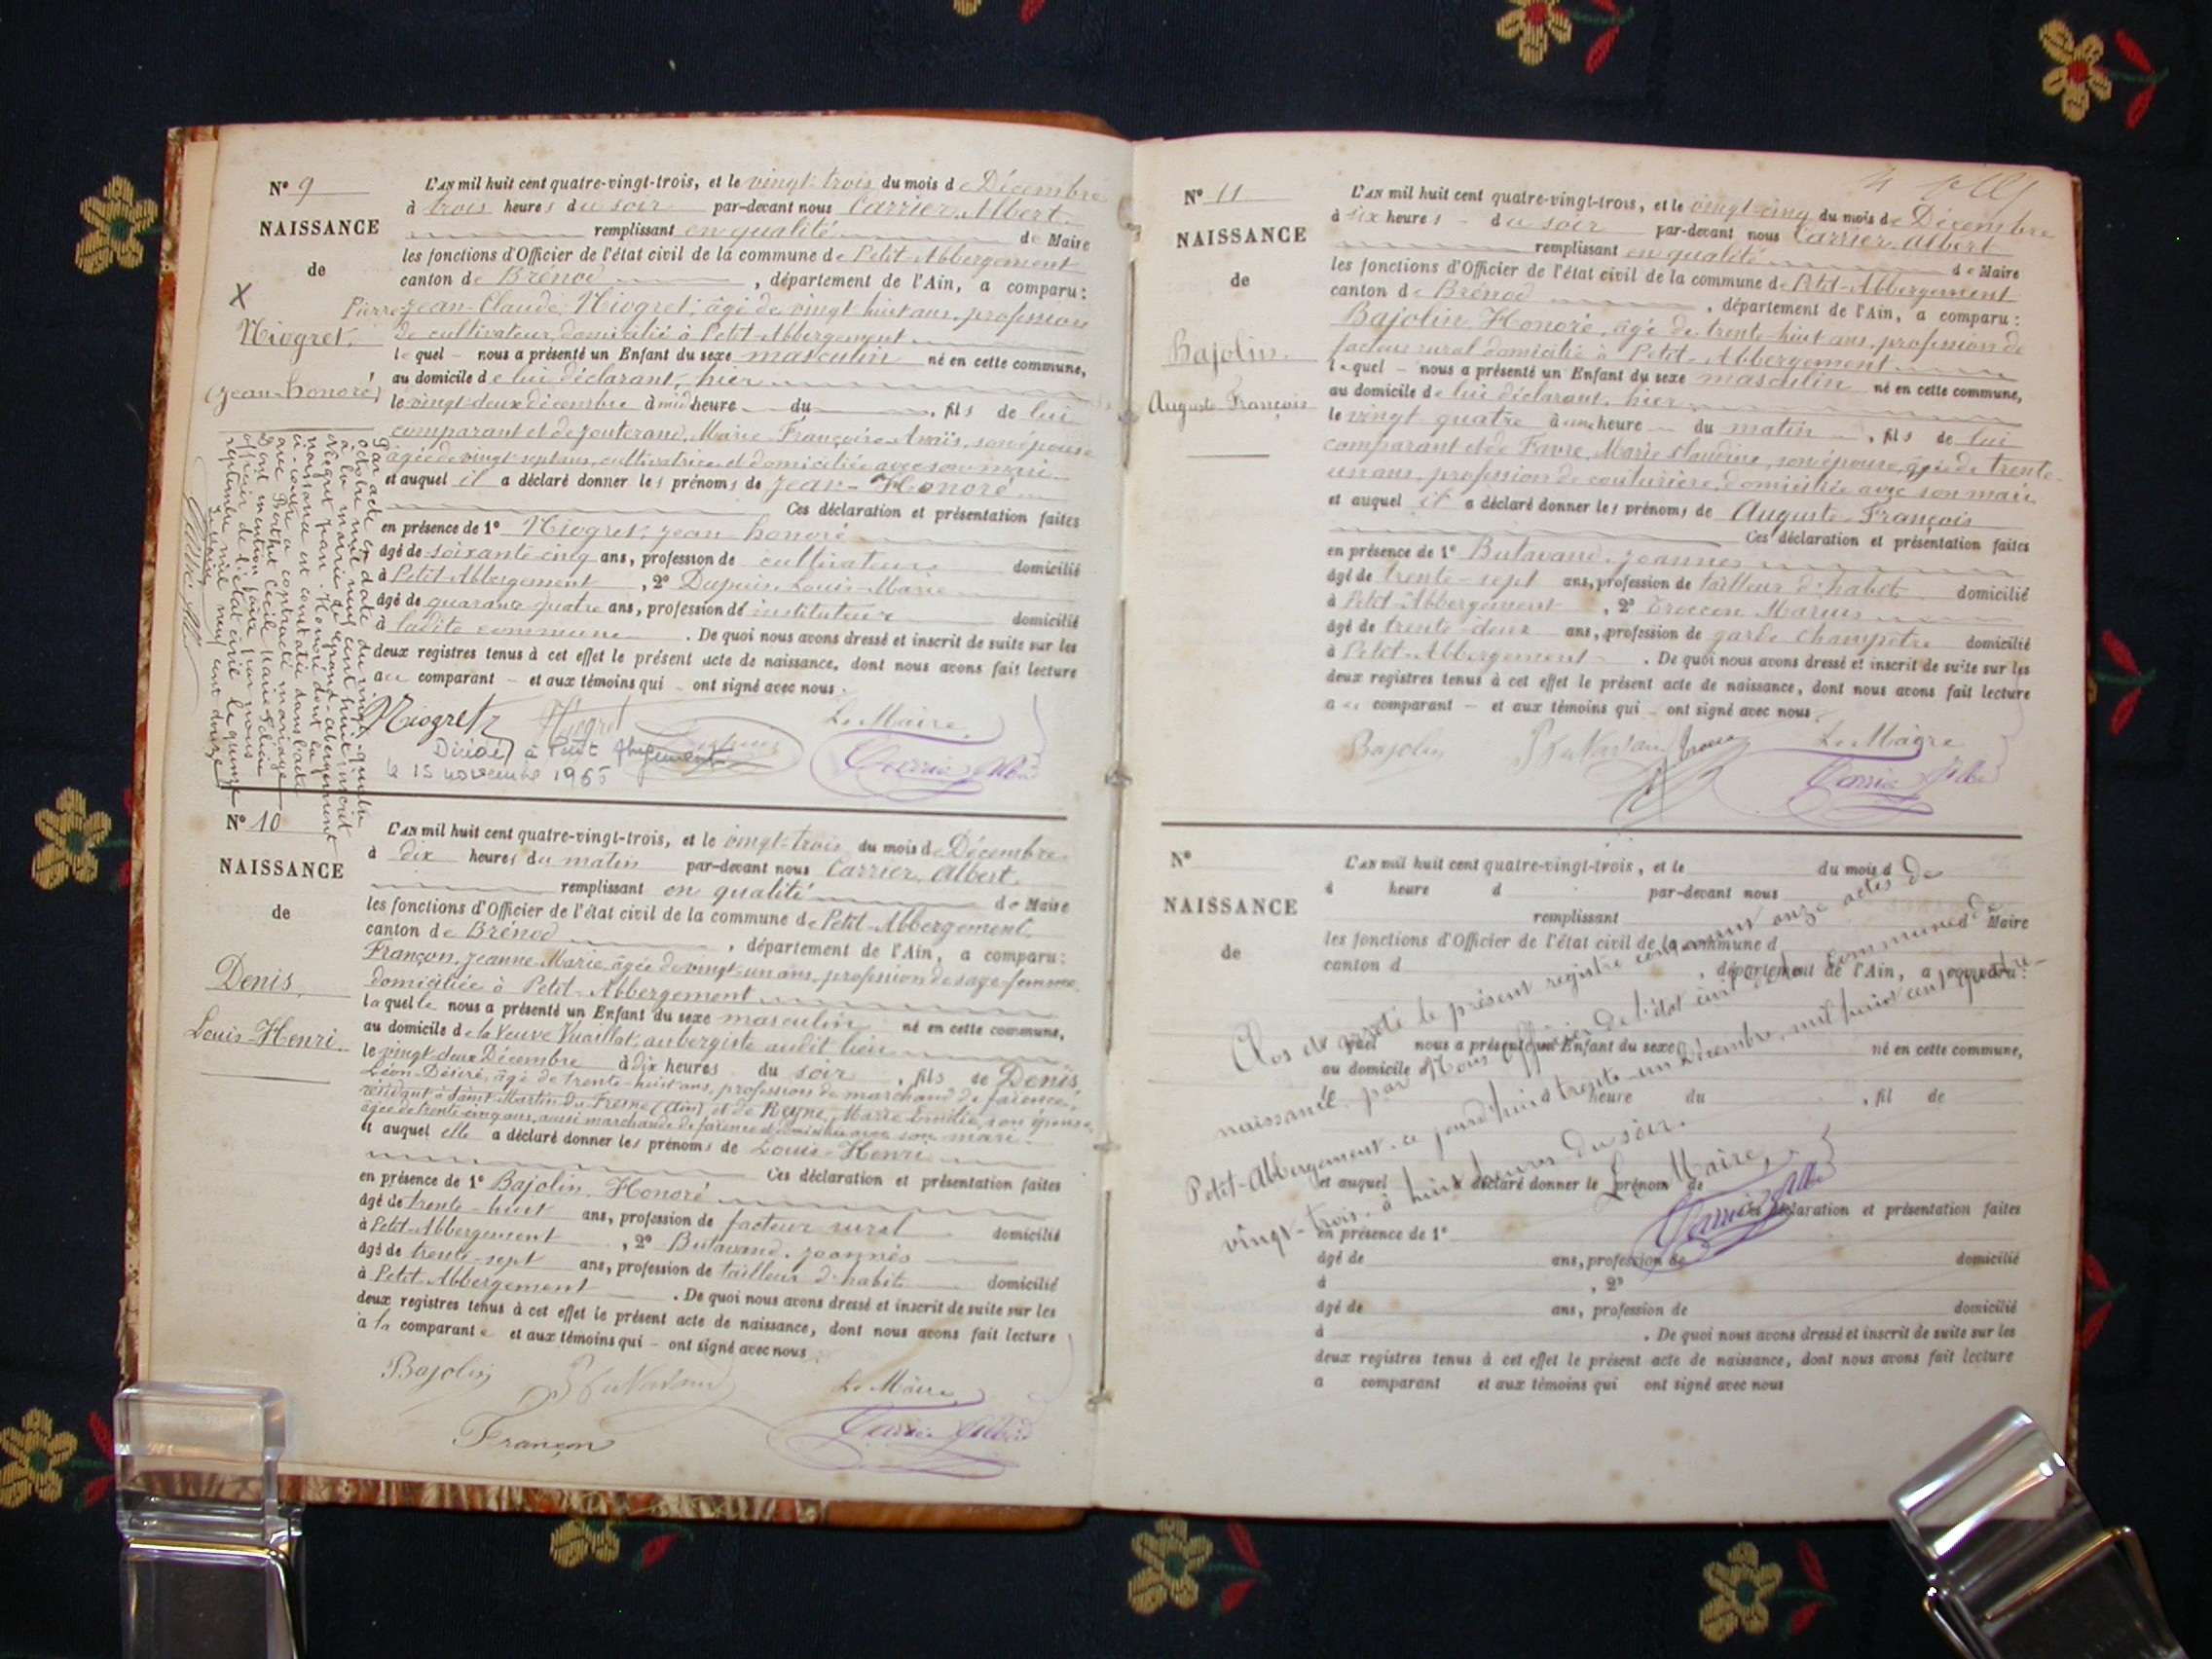 N° 9
NAISSANCE
de
X
Niogret
(Jean-honoré)
L'AN mil huit cent quatre-vingt-trois, et le vingt-trois du mois de Décembre
à trois heures du soir par-devant nous Carrier Albert
remplissant en qualité de Maire
les fonctions d'Officier de l'état civil de la commune de Petit-Abbergement
canton de Brénod, département de l'Ain, a comparu:
Pierre Jean-Claude Niogret, âgé de vingt huit ans, profession
de cultivateur, domicilié à Petit-Abbergement
lequel nous a présenté un Enfant du sexe masculin né en cette commune,
au domicile de lui déclarant, hier
le vingt-deux décembre à midi heure du, fils de lui
comparant et de Jouterand, Marie Françoise Anaïs, son épouse
âgée de vingt-sept ans, cultivatrice et domiciliée avec son mari
et auquel il a déclaré donner les prénoms de Jean-Honoré
Ces déclaration et présentation faites
en présence de 1° Niogret, Jean honoré
âgé de soixante cinq ans, profession de cultivateur domicilié
à Petit-Abbergement, 2° Dupuis, Louis-Marie
âgé de quarante quatre ans, profession de instituteur domicilié
à ladite commune. De quoi nous avons dressé et inscrit de suite sur les
deux registres tenus à cet effet le présent acte de naissance, dont nous avons fait lecture
au comparant et aux témoins qui ont signé avec nous.
Niogret Niogret Le Maire
Décédé à Petit Abergement Carrier Albert
le 15 novembre 1965
Par acte en date du
octobre mil neuf cent huit inscrit
à la mairie de Grand-abergement
Niogret Jean-Honoré dont la
naissance est constatée dans l'acte
ci-contre a contracté mariage
avec Berthet Cécile Marie
Dont mention faite par nous
officier de l'état civil le quinze
septembre mil neuf cent douze
N° 10
NAISSANCE
de
Denis
Louis-Henri
L'AN mil huit cent quatre-vingt-trois, et le vingt-trois du mois de Décembre
à dix heures du matin par-devant nous Carrier Albert
remplissant en qualité de Maire
les fonctions d'Officier de l'état civil de la commune de Petit-Abbergement
canton de Brénod, département de l'Ain, a comparu:
Françon, Jeanne-Marie, âgée de vingt-un ans, profession de sage-femme
domiciliée à Petit-Abbergement
laquelle nous a présenté un Enfant du sexe masculin né en cette commune,
au domicile de la Veuve Vuaillat, aubergiste audit lieu
le vingt-deux Décembre à dix heures du soir, fils de Denis
Léon-Désiré, âgé de trente-huit ans, profession de marchand de faïence,
résidant à Saint-Martin-du-Fresne (Ain) et de Reyne, Marie Emilie, son épouse
âgée de trente-cinq ans, aussi marchande de faïence et domiciliée avec son mari
et auquel elle a déclaré donner les prénoms de Louis-Henri
Ces déclaration et présentation faites
en présence de 1° Bajolin, Honoré
âgé de trente-huit ans, profession de facteur rural domicilié
à Petit-Abbergement, 2° Butavand, Joannès
âgé de trente-sept ans, profession de tailleur d'habits domicilié
à Petit-Abbergement. De quoi nous avons dressé et inscrit de suite sur les
deux registres tenus à cet effet le présent acte de naissance, dont nous avons fait lecture
à la comparante et aux témoins qui ont signé avec nous
Bajolin Butavand Le Maire
Françon Carrier Albert
N° 11
NAISSANCE
de
Bajolin
Auguste François
L'AN mil huit cent quatre-vingt-trois, et le vingt-cinq du mois de Décembre
à six heures du soir par-devant nous Carrier Albert
remplissant en qualité de Maire
les fonctions d'Officier de l'état civil de la commune de Petit-Abbergement
canton de Brénod, département de l'Ain, a comparu:
Bajolin, Honoré, âgé de trente-huit ans, profession de
facteur rural domicilié à Petit-Abbergement
lequel nous a présenté un Enfant du sexe masculin né en cette commune,
au domicile de lui déclarant, hier
le vingt quatre à une heure du matin, fils de lui
comparant et de Favre, Marie Claudine, son épouse, âgée de trente-
un ans, profession de couturière, domiciliée avec son mari
et auquel il a déclaré donner les prénoms de Auguste-François
Ces déclaration et présentation faites
en présence de 1° Butavand, Joannes
âgé de trente-sept ans, profession de tailleur d'habit domicilié
à Petit-Abbergement, 2° Troccon Marius
âgé de trente-deux ans, profession de garde champêtre domicilié
à Petit-Abbergement. De quoi nous avons dressé et inscrit de suite sur les
deux registres tenus à cet effet le présent acte de naissance, dont nous avons fait lecture
au comparant et aux témoins qui ont signé avec nous
Bajolin Butavand Le Maire
Carrier Albert
N°
NAISSANCE
de
L'AN mil huit cent quatre-vingt-trois, et le du mois d
à heure d par-devant nous
remplissant d Maire
les fonctions d'Officier de l'état civil de la commune d
canton d, département de l'Ain, a comparu:
quel nous a présenté un Enfant du sexe né en cette commune,
au domicile d
le heure du, fil de
et auquel a déclaré donner le prénom de
Ces déclaration et présentation faites
en présence de 1°
âgé de ans, profession de domicilié
à, 2°
âgé de ans, profession de domicilié
à. De quoi nous avons dressé et inscrit de suite sur les
deux registres tenus à cet effet le présent acte de naissance, dont nous avons fait lecture
a comparant et aux témoins qui ont signé avec nous
Clos et arrêté le présent registre contenant onze actes de
naissance par Nous Officier de l'état civil de la commune de
Petit-Abbergement, ce jourd'hui trente-un Décembre, mil huit cent quatre-
vingt-trois, à huit heures du soir.
Le Maire,
Carrier Albert